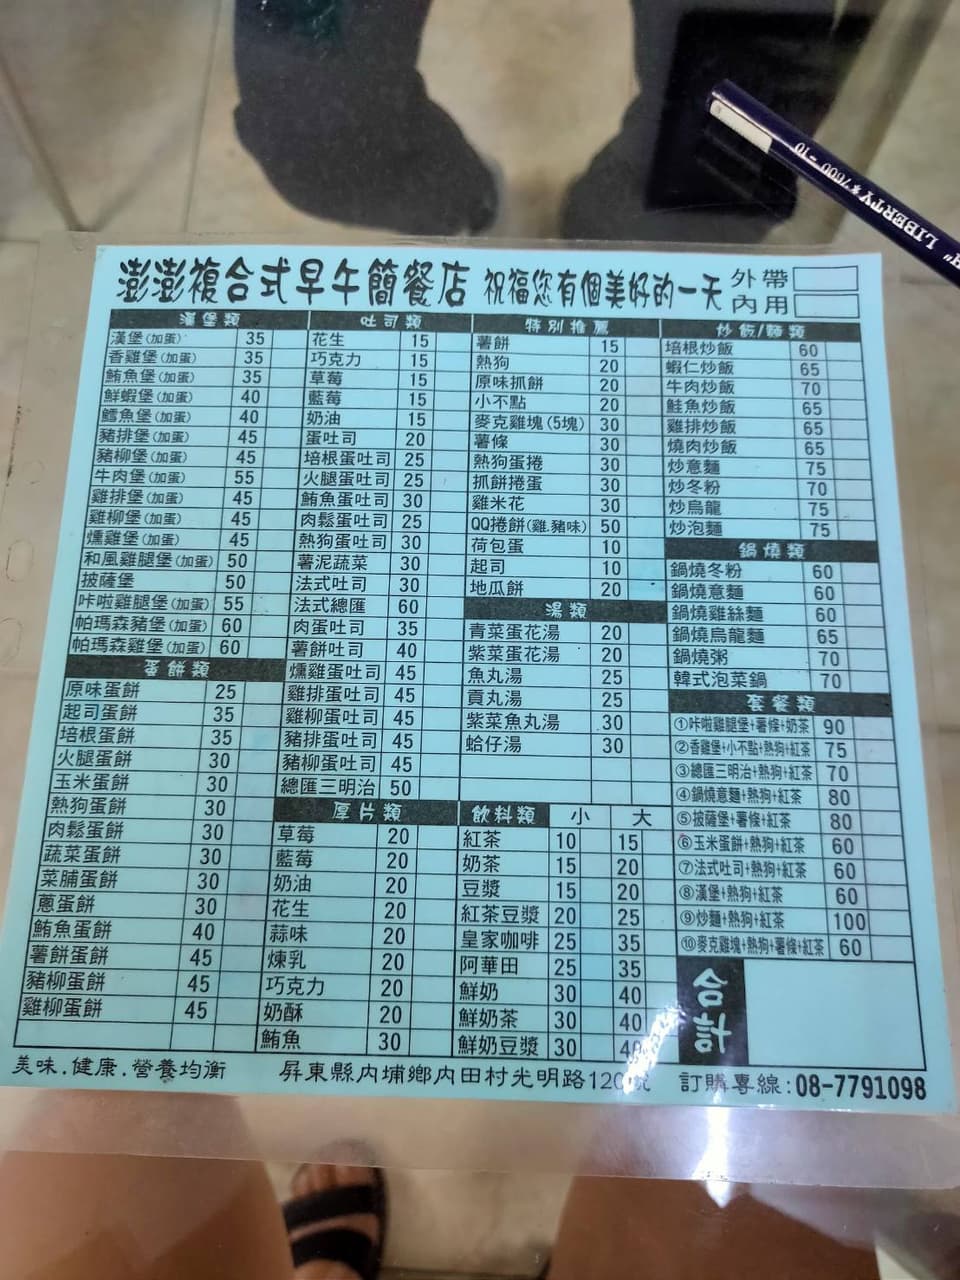 澎澎複合式早午簡餐店 祝福您有個美好的一天
外帶
內用
漢堡類
漢堡(加蛋) 35
香雞堡(加蛋) 35
鮪魚堡(加蛋) 35
鮮蝦堡(加蛋) 40
鱈魚堡(加蛋) 40
豬排堡(加蛋) 45
豬柳堡(加蛋) 45
牛肉堡(加蛋) 55
雞排堡(加蛋) 45
雞柳堡(加蛋) 45
燻雞堡(加蛋) 45
和風雞腿堡(加蛋) 50
披薩堡 50
咔啦雞腿堡(加蛋) 55
帕瑪森豬堡(加蛋) 60
帕瑪森雞堡(加蛋) 60
蛋餅類
原味蛋餅 25
起司蛋餅 35
培根蛋餅 35
火腿蛋餅 30
玉米蛋餅 30
熱狗蛋餅 30
肉鬆蛋餅 30
蔬菜蛋餅 30
菜脯蛋餅 30
蔥蛋餅 30
鮪魚蛋餅 40
薯餅蛋餅 45
豬柳蛋餅 45
雞柳蛋餅 45
吐司類
花生 15
巧克力 15
草莓 15
藍莓 15
奶油 15
蛋吐司 20
培根蛋吐司 25
火腿蛋吐司 25
鮪魚蛋吐司 30
肉鬆蛋吐司 25
熱狗蛋吐司 30
薯泥蔬菜 30
法式吐司 30
法式總匯 60
肉蛋吐司 35
薯餅吐司 40
燻雞蛋吐司 45
雞排蛋吐司 45
雞柳蛋吐司 45
豬排蛋吐司 45
豬柳蛋吐司 45
總匯三明治 50
厚片類
草莓 20
藍莓 20
奶油 20
花生 20
蒜味 20
煉乳 20
巧克力 20
奶酥 20
鮪魚 30
特別推薦
薯餅 15
熱狗 20
原味抓餅 20
小不點 20
麥克雞塊(5塊) 30
薯條 30
熱狗蛋捲 30
抓餅捲蛋 30
雞米花 30
QQ捲餅(雞.豬味) 50
荷包蛋 10
起司 10
地瓜餅 20
湯類
青菜蛋花湯 20
紫菜蛋花湯 20
魚丸湯 25
貢丸湯 25
紫菜魚丸湯 30
蛤仔湯 30
飲料類 小 大
紅茶 10 15
奶茶 15 20
豆漿 15 20
紅茶豆漿 20 25
皇家咖啡 25 35
阿華田 25 35
鮮奶 30 40
鮮奶茶 30 40
鮮奶豆漿 30 40
炒飯/麵類
培根炒飯 60
蝦仁炒飯 65
牛肉炒飯 70
鮭魚炒飯 65
雞排炒飯 65
燒肉炒飯 65
炒意麵 75
炒冬粉 70
炒烏龍 75
炒泡麵 75
鍋燒類
鍋燒冬粉 60
鍋燒意麵 60
鍋燒雞絲麵 60
鍋燒烏龍麵 65
鍋燒粥 70
韓式泡菜鍋 70
套餐類
①咔啦雞腿堡+薯條+奶茶 90
②香雞堡+小不點+熱狗+紅茶 75
③總匯三明治+熱狗+紅茶 70
④鍋燒意麵+熱狗+紅茶 80
⑤披薩堡+薯條+紅茶 80
⑥玉米蛋餅+熱狗+紅茶 60
⑦法式吐司+熱狗+紅茶 60
⑧漢堡+熱狗+紅茶 60
⑨炒麵+熱狗+紅茶 100
⑩麥克雞塊+熱狗+薯條+紅茶 60
合計
美味.健康.營養均衡 屏東縣內埔鄉內田村光明路120號 訂購專線:08-7791098
LIBERTY*7600-10